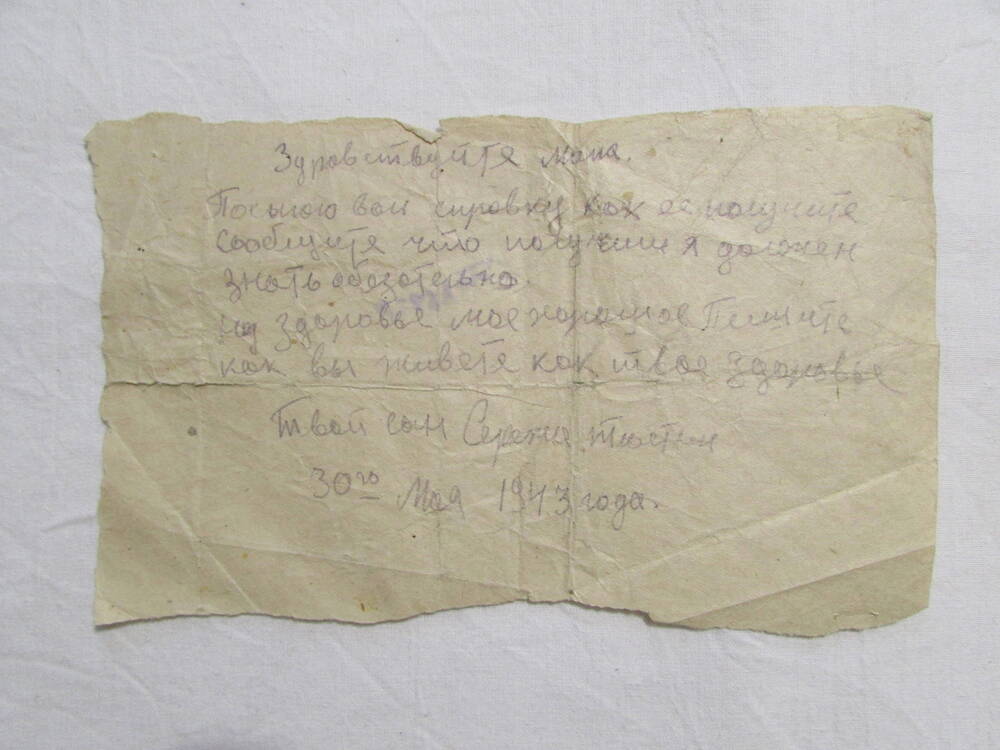 Здравствуйте мама.
Посылаю вам справку как ее получите
сообщите что получили я должен
знать обезательно.
здоровье мое хорошое Пишите
как вы живете как твое здоровье
Твой сын Сережа
30го Мая 1943 года.